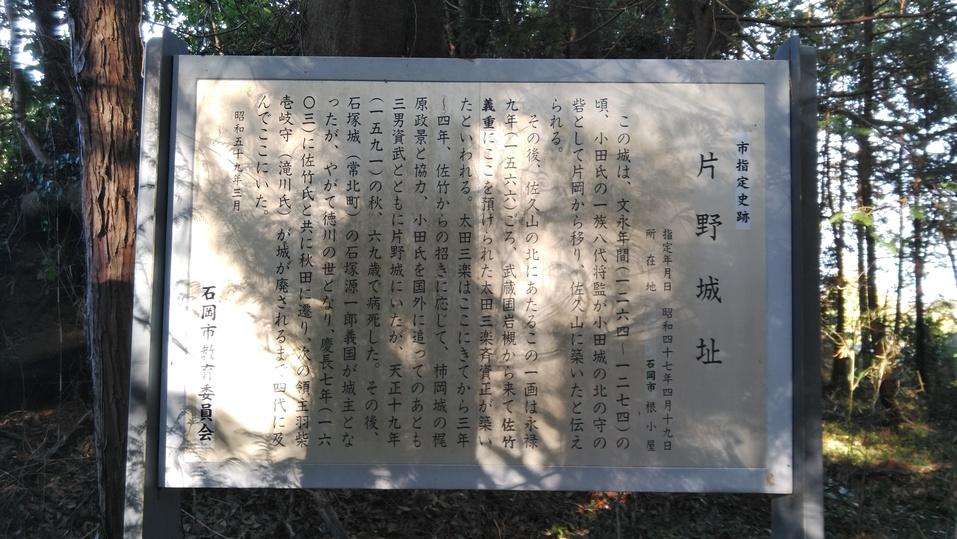 市指定史跡
片野城址
指定年月日 昭和四十七年四月十九日
所在地 石岡市根小屋
この城は、文永年間(一二六四~一二七四)の
頃、小田氏の一族八代将監が小田城の北の守の
砦として片岡から移り、佐久山に築いたと伝え
られる。
その後、佐久山の北にあたるこの一画は永禄
九年(一五六六)ごろ、武蔵国岩槻から来て佐竹
義重にここを預けられた太田三楽斉資正が築い
たといわれる。太田三楽はここにきてから三年
~四年、佐竹からの招きに応じて、柿岡城の梶
原政景と協力、小田氏を国外に追ってのあとも
三男資武とともに片野城にいたが、天正十九年
(一五九一)の秋、六九歳で病死した。その後、
石塚城(常北町)の石塚源一郎義国が城主とな
ったが、やがて徳川の世となり、慶長七年(一六
〇三)に佐竹氏と共に秋田に遷り、次の領主羽柴
壱岐守(滝川氏)が城が廃されるまで四代に及
んでここにいた。
昭和五十九年三月
石岡市教育委員会